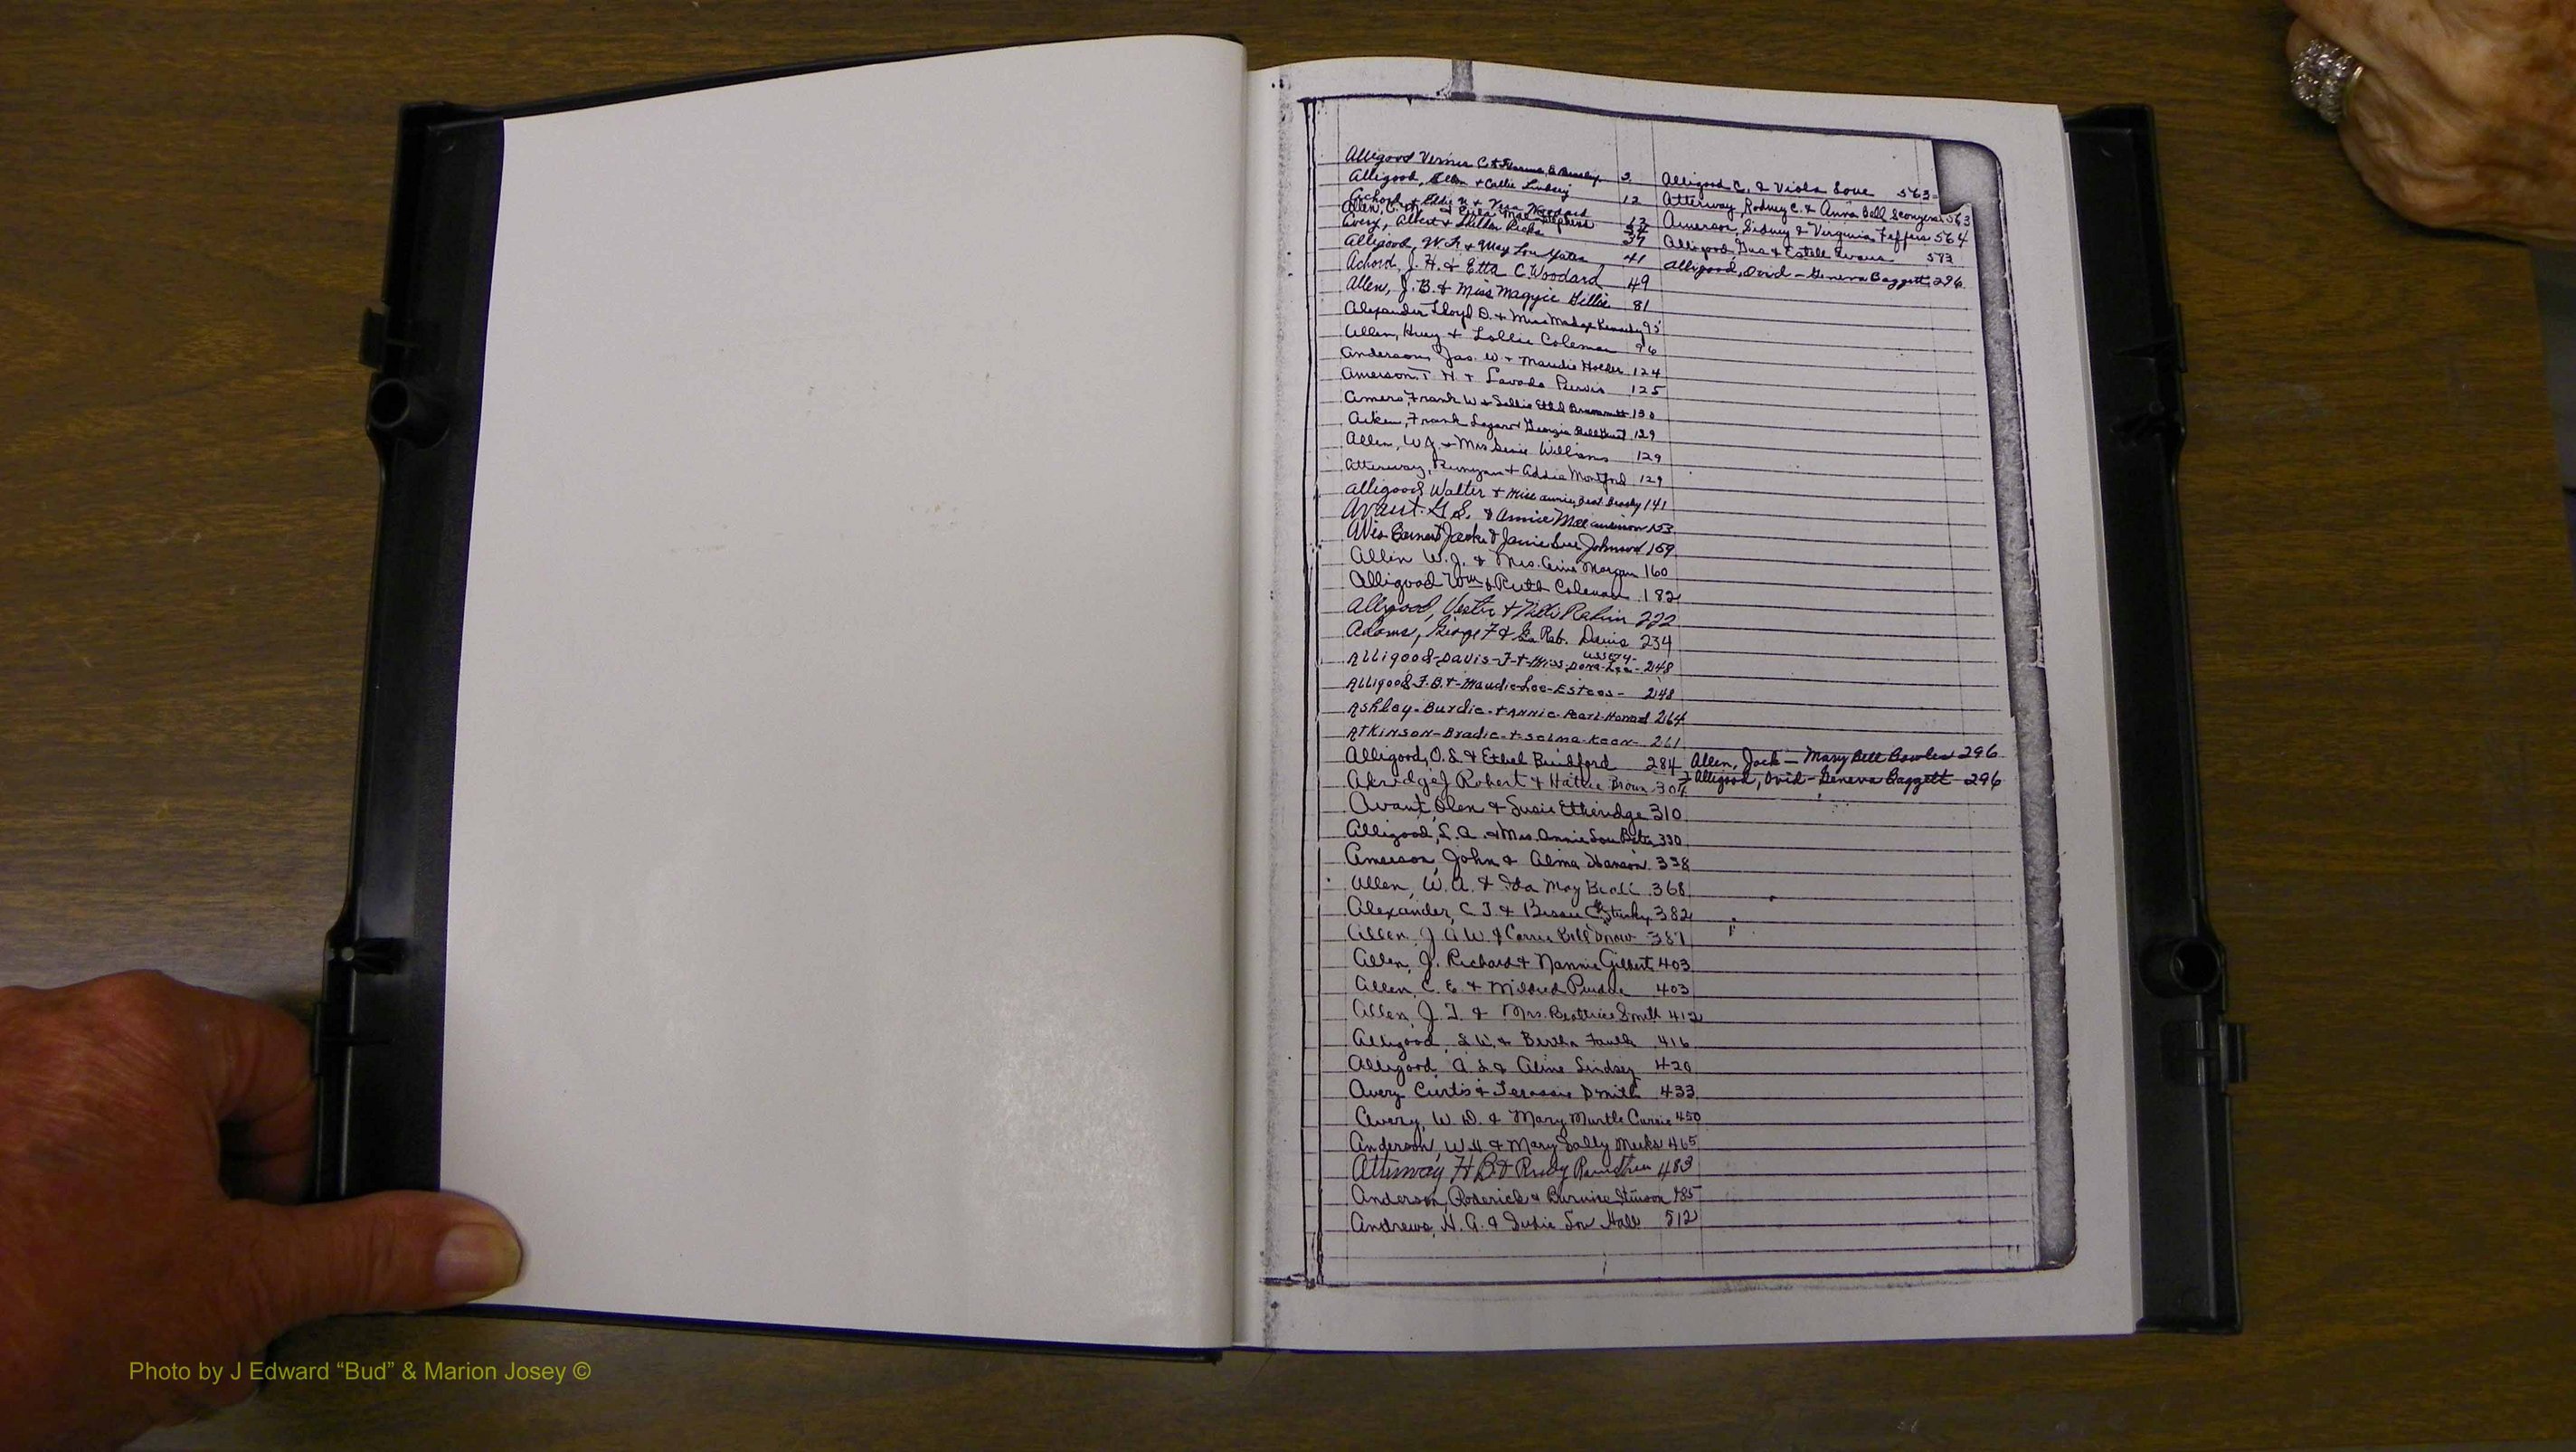 Alligood Vernie C & Brasley 2
Alligood, & Callie Lindsey 12
Achord, Eddie N & Vera Woodard 13
Allen, C. & Eula Mae Stephens
Avery, Albert & Ricks 37
Alligood, W. L. & May Lou Yates 41
Achord, J. H. & Etta C Woodard 49
Allen, J. B. & Miss Maggie Gillis 81
Alexander Lloyd D. & Miss Madge Kennedy 95
Allen, Huey & Lollie Coleman 96
Anderson, Jas. W. & Maudie Holder 124
Amerson, T. H. & Lavada Purvis 125
Frank W & Sallie Ethel 130
Aiken, Frank & Georgia Bell 129
Allen, W J. & Mrs Williams 129
Attaway, Runyan & Addie Montford 129
Alligood Walter & Miss Annie Beat. Brasley 141
Avant. G. S. & Annie Mae 153
Avis Earnest Jack & Janie Sue Johnson 159
Allen W. J. & Mrs. Morgan 160
Alligood Wm & Ruth Coleman 182
Alligood, & 222
Adams, George F & Davis 234
Ussery-
Alligood-Davis-F-&-Miss-Dora-Lee- 248
Alligood F. B. &-Maudie-Lee-Esters- 248
Ashley-Burdie-&-Annie-Pearl-Howard 264
Atkinson-Bradie-&-Selma-Keen- 261
Alligood, O. L. & Ethel Brindford 284 Allen, Jack - Mary Bell Bowles 296
Akridge, J Robert & Hattie Brown 307 Alligood, Ovid - Geneva Baggett 296
Avant, Olen & Susie Etheridge 310
Alligood, L. A. & Mrs. Annie Lou 330
Amerson, John & Alma Hanson 338
Allen, W. A. & Ida May 368
Alexander, C. T. & Bessie 382
Allen, J A W. & Carrie Bell Snow 387
Allen, J. Richard & Nannie Gilbert 403
Allen, C. E. & Mildred Purdue 403
Allen, J. T. & Mrs. Beatrice Smith 412
Alligood, L. W. & Bertha Faulk 416
Alligood, A. L. & Aline Lindsey 420
Avery Curtis & Smith 433
Avery, W. D. & Mary Murtle Currie 450
Anderson, W. H. & Mary Sally Meeks 465
Attaway H B & Ruby 483
Anderson, Roderick & Burnice Stinson 485
Andrews, H. G. & Susie Lou Hall 512
Alligood C. & Viola Love 563
Attaway, Rodney C. & Anna Bell Scongers 563
Amerson, Sidney & Virginia Feffers 564
Alligood, Gus & Estell Evans 573
Alligood, Ovid - Geneva Baggett 296
Photo by J Edward “Bud” & Marion Josey ©